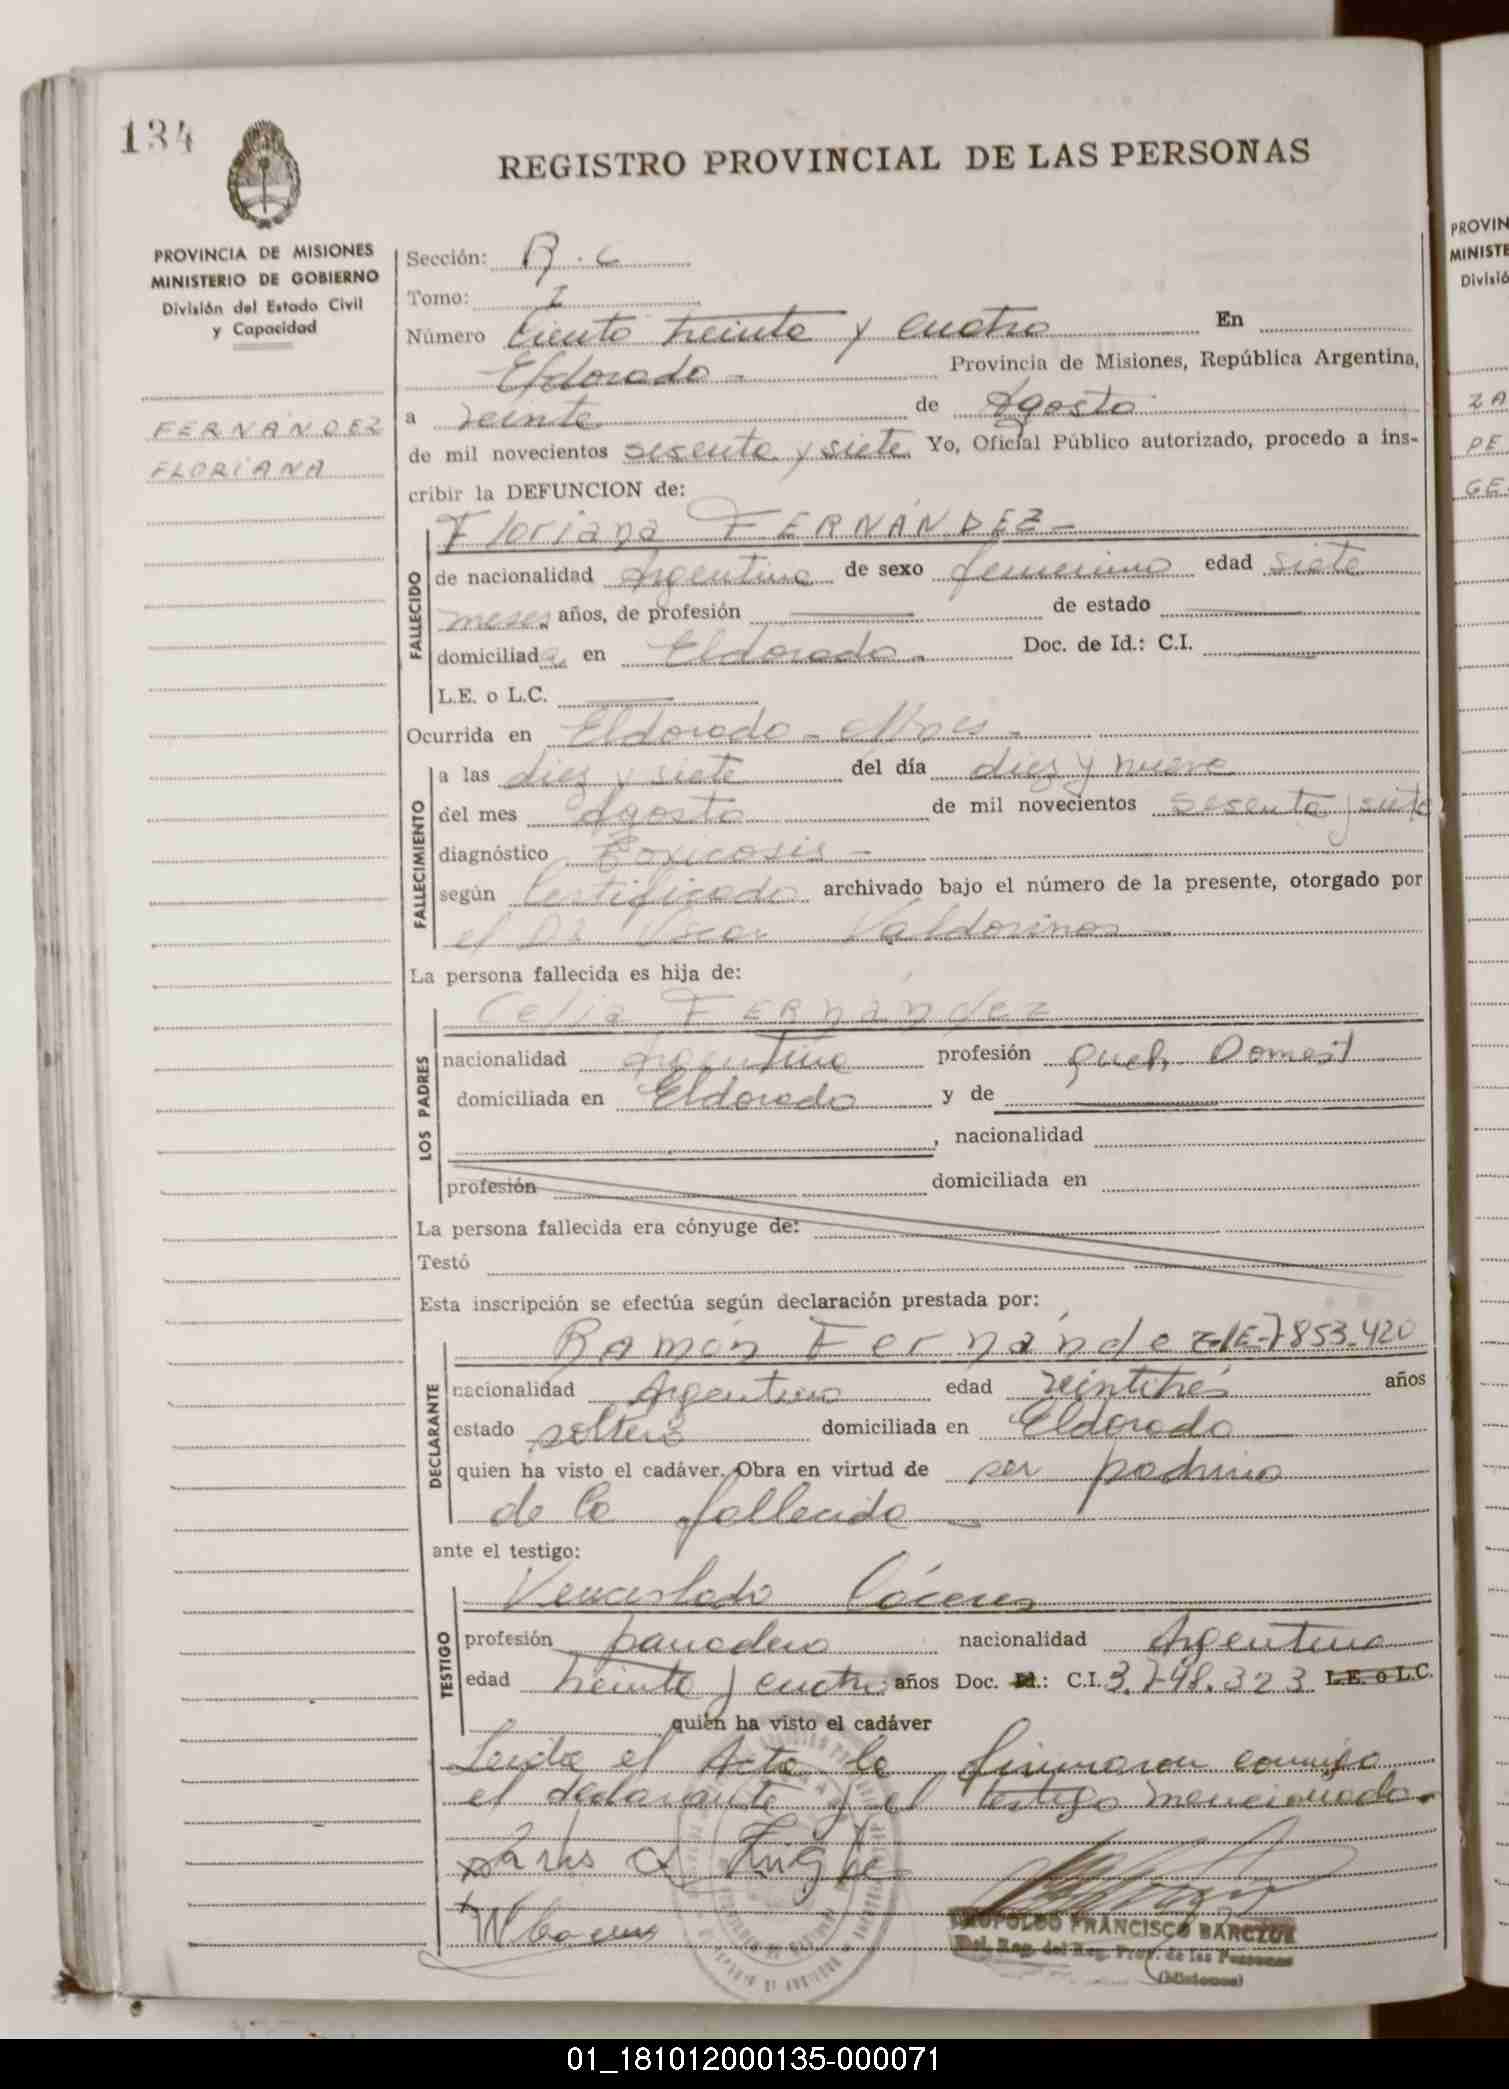 134
REGISTRO PROVINCIAL DE LAS PERSONAS
PROVINCIA DE MISIONES
MINISTERIO DE GOBIERNO
División del Estado Civil
y Capacidad
FERNÁNDEZ
FLORIANA
Sección:
Tomo: I
Número Ciento treinta y cuatro En
Eldorado - Provincia de Misiones, República Argentina,
a veinte de Agosto
de mil novecientos sesenta y siete Yo, Oficial Público autorizado, procedo a ins-
cribir la DEFUNCION de:
FALLECIDO
Floriana FERNÁNDEZ -
de nacionalidad Argentina de sexo femenino edad siete
meses años, de profesión de estado
domiciliada en Eldorado - Doc. de Id.: C.I.
L.E. o L.C.
Ocurrida en Eldorado - Mnes -
FALLECIMIENTO
a las diez y siete del día diez y nueve
del mes Agosto de mil novecientos sesenta y siete
diagnóstico Toxicosis -
según Certificado archivado bajo el número de la presente, otorgado por
el Dr Oscar Valdorinos -
La persona fallecida es hija de:
LOS PADRES
Celia FERNÁNdez
nacionalidad Argentina profesión queh. Domest
domiciliada en Eldorado y de
, nacionalidad
profesión domiciliada en
La persona fallecida era cónyuge de:
Testó
Esta inscripción se efectúa según declaración prestada por:
DECLARANTE
Ramón Fernández L.E. 7853.420
nacionalidad Argentino edad veintitrés años
estado soltero domiciliada en Eldorado
quien ha visto el cadáver. Obra en virtud de ser padrino
de la fallecida -
ante el testigo:
TESTIGO
Venceslado Cáceres
profesión panadero nacionalidad Argentino
edad treinta y cuatro años Doc. Id.: C.I. 3.748.323 L.E. o L.C.
quien ha visto el cadáver
Leida el Acta la firmaron conmigo
el declarante y el testigo mencionado.
W Caceres
LEOPOLDO FRANCISCO BARCZUK
Del. Reg. del Reg. Prov. de las Personas
(Misiones)
PROVIN
MINISTE
Divisió
ZA
PE
GE
01_181012000135-000071